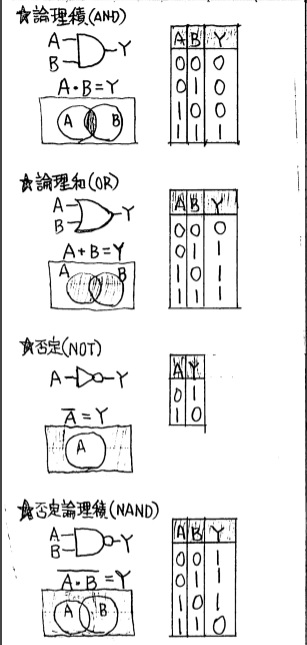 ☆論理積(AND)
A
B
Y
A・B=Y
A B
A B Y
0 0 0
0 1 0
1 0 0
1 1 1
☆論理和(OR)
A
B
Y
A+B=Y
A B
A B Y
0 0 0
0 1 1
1 0 1
1 1 1
☆否定(NOT)
A Y
A̅=Y
A
A Y
0 1
1 0
☆否定論理積(NAND)
A
B
Y
A̅・̅B̅=Y
A B
A B Y
0 0 1
0 1 1
1 0 1
1 1 0